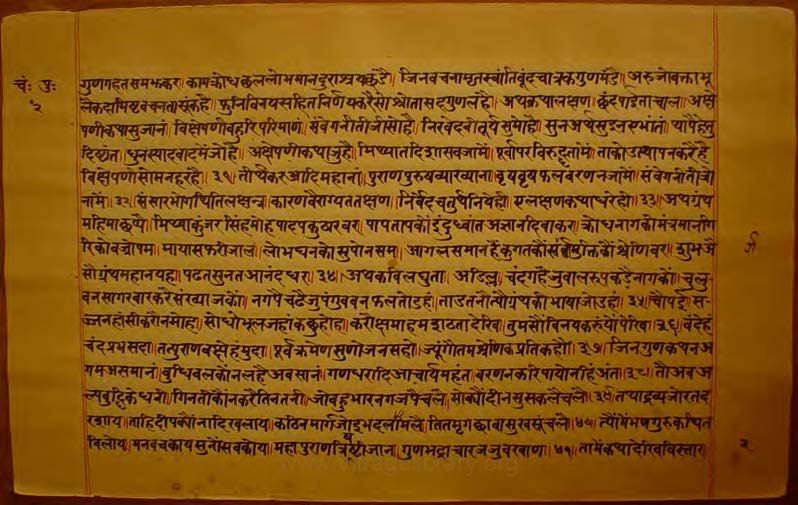 चं॰ पु॰
२
गुणगदतसमझकर॥ कामक्रोधछललोभमानदुराश्रय छंडै॥ जिनवचनामृतस्वांतिबूंदचात्रकगुणमंडै॥ अरुजोवक्ताभू
लैकदामिष्टवचनतासूंकहै॥ फुनिविनयसहितनिर्णयकरैसोश्रोतासदगुणलहै॥ अथकथालक्षण॥ छंदपाईताचाल॥ अक्षे
पणीकथासुजानं॥ विक्षेपणीबहुरिपरिमाणं॥ संवेगनीतीजीसोहै॥ निरवेदवीतूर्यसुमोहै॥ सुनअथसुइनरूभांतं॥ यापैहेतु
दिष्टांत॥ धुनस्यादवादमेंजोहै॥ अक्षेपणीकथाजुहै॥ मिथ्यातदिशासवजामें॥ पूर्वापरविरुद्धनामें॥ ताकोउत्थापनकरैहै
विक्षेपणीसोमनहरहै॥ ३१॥ तीर्थंकरआदिमहानां॥ पुराणपुरुषव्याख्याना॥ वृषवृषफलवरणनजामें॥ संवेगनीतीजी
नामें॥ ३२॥ संसारभोगथितिलक्षन॥ कारणवैराग्यततक्षण॥ निर्वेदचतुर्थनियेहो॥ एलक्षणकथाधरेहो॥ ३३॥ अथग्रंथ
महिमाछप्पै॥ मिथ्याकुंजरसिंहमोहपादपकुठारवर॥ पापतापकोंइंदुध्वांतअज्ञानदिवाकर॥ क्रोधनागकोमंत्रमानगि
रिकोवज्रोपम॥ मायासफरीजाल॥ लोभघनकोसुपोनसम॥ आगलसमानहैकुगतकों मुक्तिकोंश्रेणिवर॥ शुभजै
सोग्रंथमहानयह॥ पढतसुनतआनंदधर॥ ३४॥ अथकविलघुता॥ अडिल्ल॥ चंदगहैजुवालरुपकडैनागकों॥ चुलु
वनसागरवारकरैसंख्याजकों॥ नगपैचंढैजुपंगुववनफलतोडहं॥ ताडतनौत्यौंग्रंथकोभाषाजोडहों॥ ३५॥ चौपई॥ स-
ज्जनहांसीकरौनमोह॥ सोधोभूलजहांकछुहोह॥ करौक्षमाहमशठतादेखि॥ तुमसौंविनयकरुंयोंपेखि॥ ३६॥ वंदेहं
चंदप्रभसदा॥ तत्पुराणवक्षेहंमुदा॥ पूर्वक्रमेणसुणोजनसहो॥ ज्यूंगौतमश्रेणिकप्रतिकहो॥ ३७॥ जिनगुणकथनअ
गमअसमानं॥ बुधिवलकोंनलहैअवसानं॥ गणधरादिआचार्यमहंत॥ वरणनकरिपायोनहिंअंत॥ ३८॥ तौअवअ
ल्पबुद्धिकेधनी॥ गिनतीकोंनकरैतिनतनी॥ जोवहुभारनगजपैचलै॥ सोक्योंदीनसुसकलैचलै॥ ३९॥ तथाद्रव्यजोरतद
रखाय॥ ताहिदीपक्योंनादिखलाय॥ कठिनमार्गजोइभदलमलै॥ तितमृगछावासुखसूंचलै॥ ४०॥ त्यौंमेंभषगुरुकथित
विलोय॥ मनवचकायसुनोसबकोय॥ महापुराणत्रिषष्टीजान॥ गुणभद्राचारजजुवखाण॥ ४१॥ तामेंकथादेखिविस्तार॥
र्ग
२
www.vitragelibrary.org